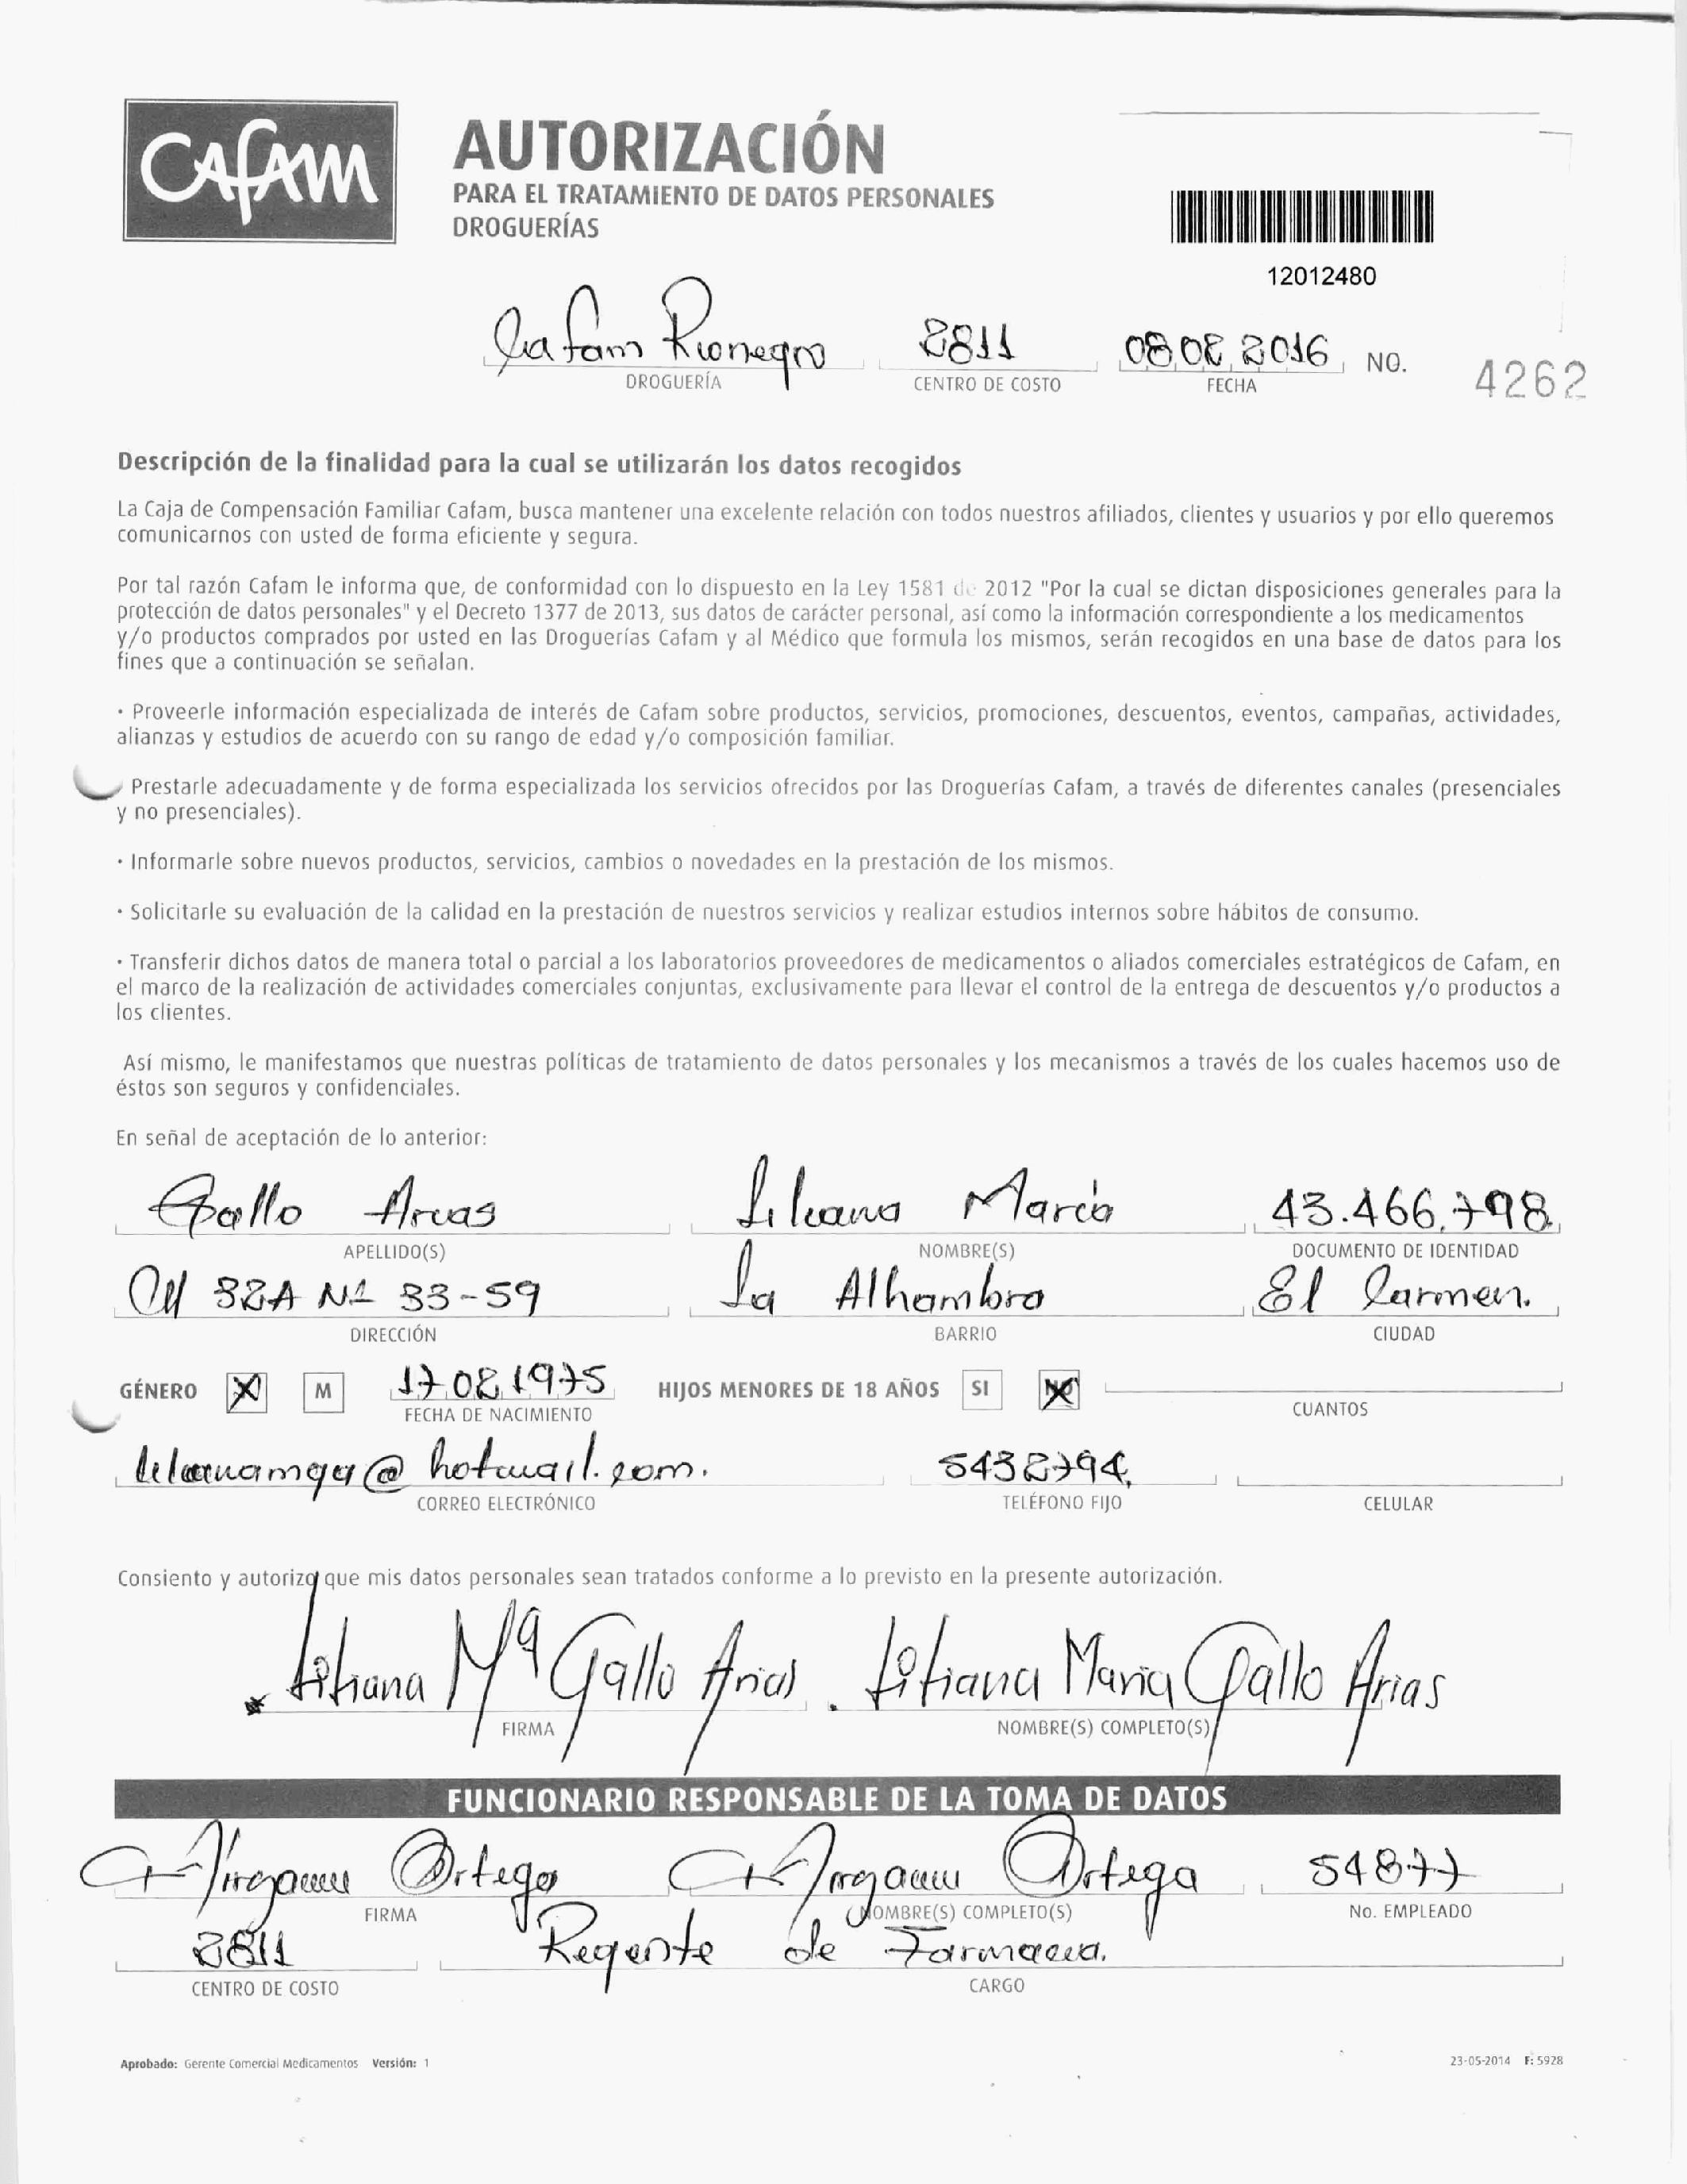 CAFAM
AUTORIZACIÓN
PARA EL TRATAMIENTO DE DATOS PERSONALES
DROGUERÍAS
12012480
Cafam Rionegro 2811 08 02 2016 NO. 4262
DROGUERÍA CENTRO DE COSTO FECHA
Descripción de la finalidad para la cual se utilizarán los datos recogidos
La Caja de Compensación Familiar Cafam, busca mantener una excelente relación con todos nuestros afiliados, clientes y usuarios y por ello queremos
comunicarnos con usted de forma eficiente y segura.
Por tal razón Cafam le informa que, de conformidad con lo dispuesto en la Ley 1581 de 2012 "Por la cual se dictan disposiciones generales para la
protección de datos personales" y el Decreto 1377 de 2013, sus datos de carácter personal, así como la información correspondiente a los medicamentos
y/o productos comprados por usted en las Droguerías Cafam y al Médico que formula los mismos, serán recogidos en una base de datos para los
fines que a continuación se señalan.
· Proveerle información especializada de interés de Cafam sobre productos, servicios, promociones, descuentos, eventos, campañas, actividades,
alianzas y estudios de acuerdo con su rango de edad y/o composición familiar.
Prestarle adecuadamente y de forma especializada los servicios ofrecidos por las Droguerías Cafam, a través de diferentes canales (presenciales
y no presenciales).
· Informarle sobre nuevos productos, servicios, cambios o novedades en la prestación de los mismos.
· Solicitarle su evaluación de la calidad en la prestación de nuestros servicios y realizar estudios internos sobre hábitos de consumo.
· Transferir dichos datos de manera total o parcial a los laboratorios proveedores de medicamentos o aliados comerciales estratégicos de Cafam, en
el marco de la realización de actividades comerciales conjuntas, exclusivamente para llevar el control de la entrega de descuentos y/o productos a
los clientes.
Así mismo, le manifestamos que nuestras políticas de tratamiento de datos personales y los mecanismos a través de los cuales hacemos uso de
éstos son seguros y confidenciales.
En señal de aceptación de lo anterior:
Gallo Arias Liliana María 43.466.798
APELLIDO(S) NOMBRE(S) DOCUMENTO DE IDENTIDAD
Cll 32A N1 33-59 La Alhambra El Carmen.
DIRECCIÓN BARRIO CIUDAD
GÉNERO X M 17 02 1975 HIJOS MENORES DE 18 AÑOS SI NO
FECHA DE NACIMIENTO CUANTOS
lilianamga@hotmail.com. 5432794
CORREO ELECTRÓNICO TELÉFONO FIJO CELULAR
Consiento y autorizo que mis datos personales sean tratados conforme a lo previsto en la presente autorización.
Liliana Mª Gallo Arias. Liliana Maria Gallo Arias
FIRMA NOMBRE(S) COMPLETO(S)
FUNCIONARIO RESPONSABLE DE LA TOMA DE DATOS
Ortega Ortega 54877
FIRMA NOMBRE(S) COMPLETO(S) No. EMPLEADO
2811 Regente de Farmacia.
CENTRO DE COSTO CARGO
Aprobado: Gerente Comercial Medicamentos Versión: 1 23-05-2014 F: 5928